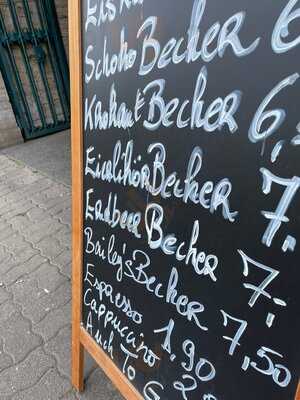 Schoko Becher 6
Krokant Becher 6,
Eierlikör Becher 7,
Erdbeer Becher 7,-
Bailey's Becher 7,50
Espresso 1,90
Cappuccino 2,
Auch To G